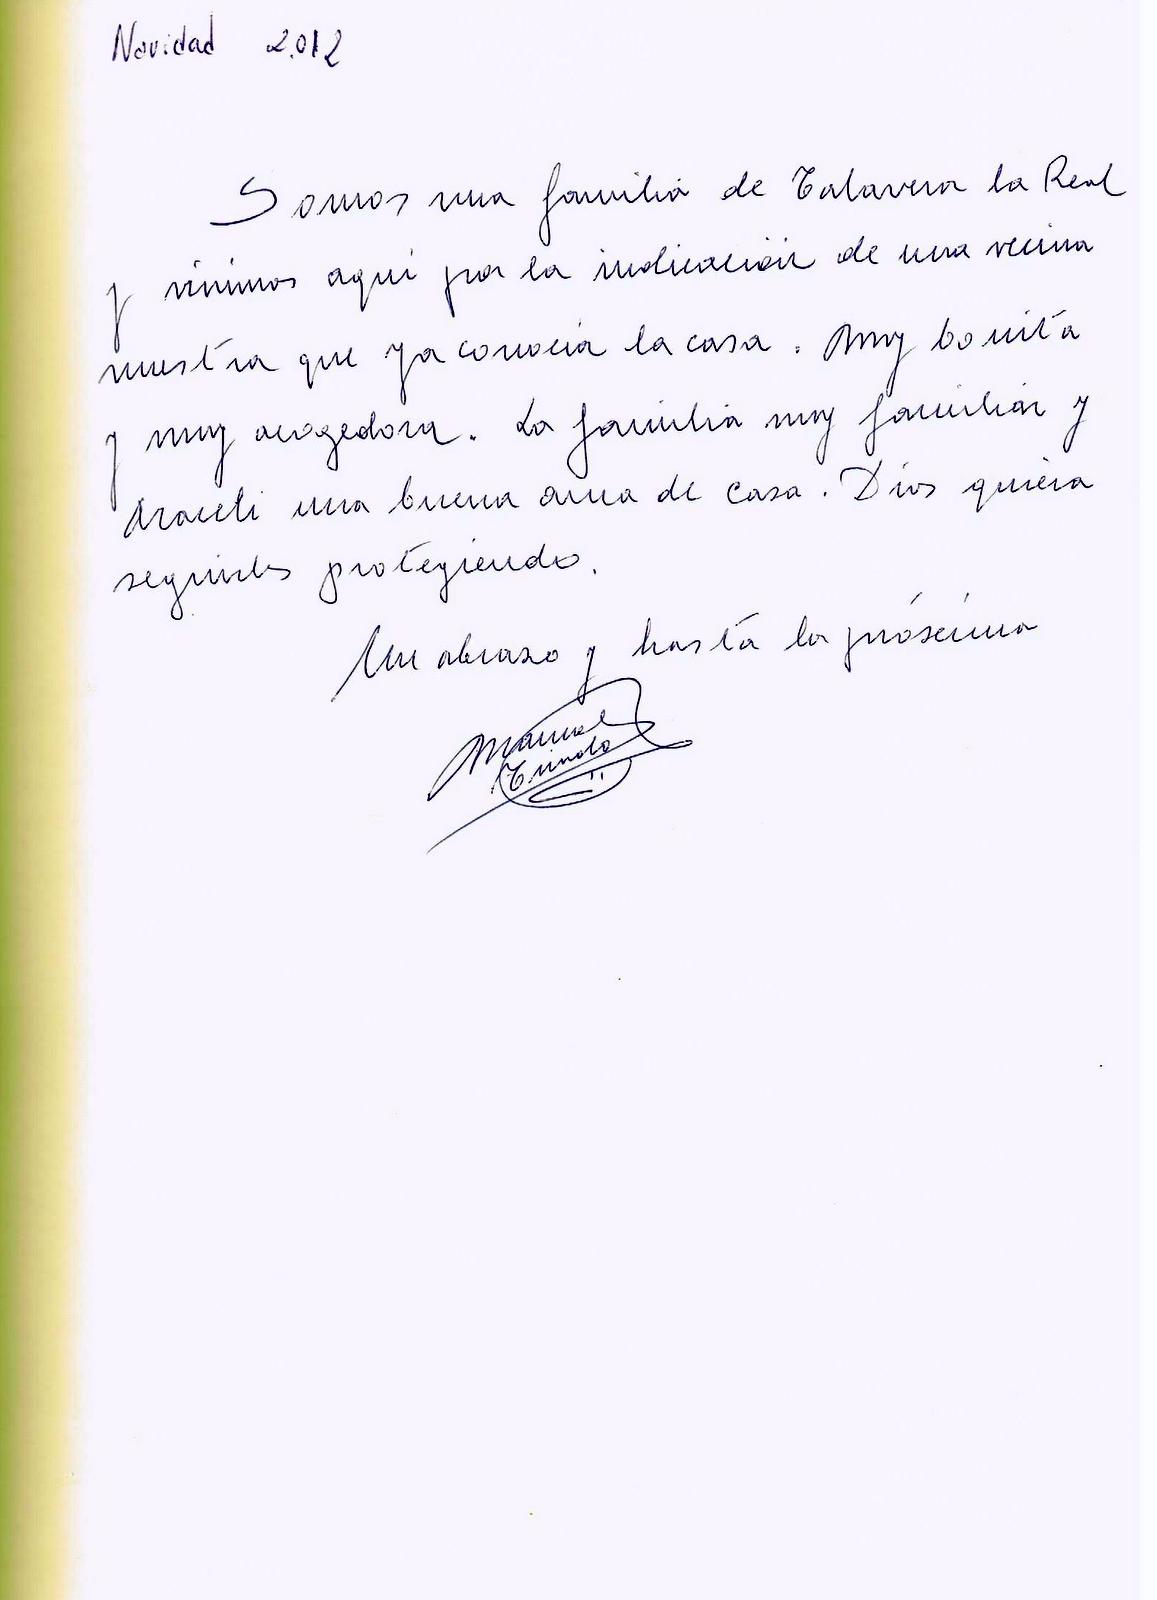 Navidad 2.012
Somos una familia de Talavera la Real
y vinimos aquí por la indicación de una vecina
nuestra que ya conocía la casa. Muy bonita
y muy acogedora. La familia muy familiar y
Araceli una buena ama de casa. Dios quiera
seguirles protegiendo.
Un abrazo y hasta la próxima
Manuel